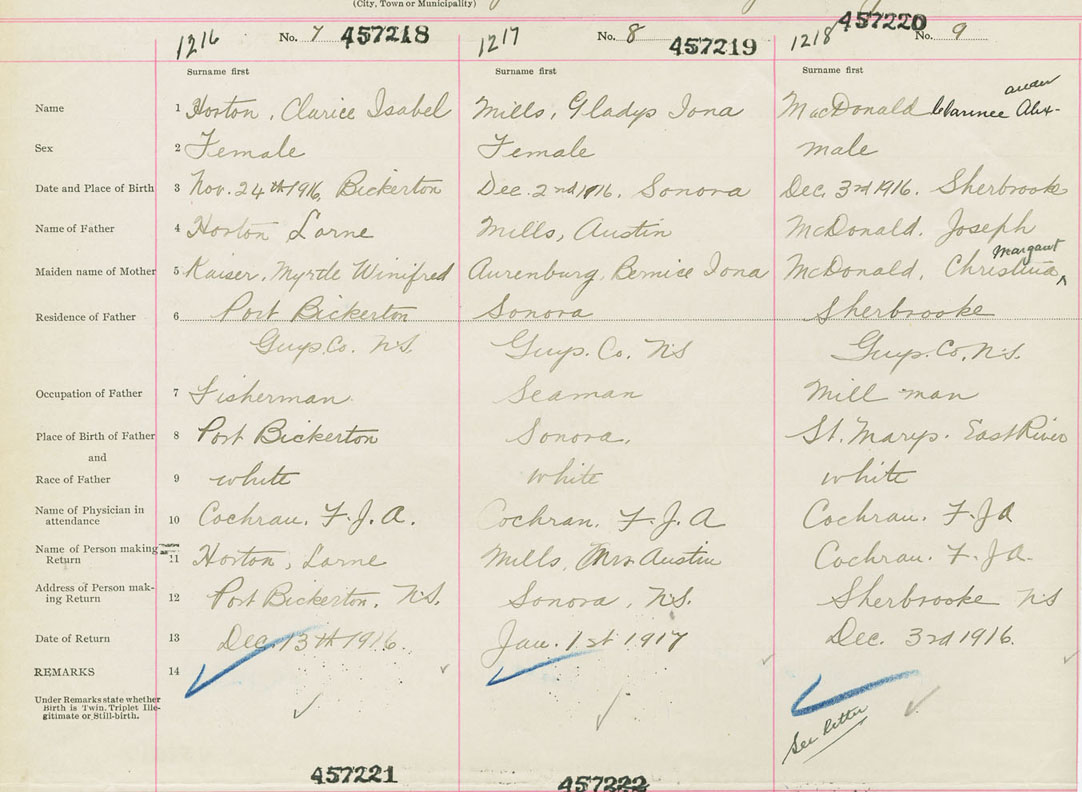 (City, Town or Municipality)
1216 No. 7 457218 1217 No. 8 457219 1218 457220 No. 9
Surname first Surname first Surname first
ander
Name 1 Horton, Clarice Isabel Mills, Gladys Iona MacDonald Clarence Alex-
Sex 2 Female Female male
Date and Place of Birth 3 Nov. 24th 1916, Bickerton Dec. 2nd 1916. Sonora Dec. 3rd 1916. Sherbrooke
Name of Father 4 Horton Lorne Mills, Austin McDonald, Joseph
Margaret
Maiden name of Mother 5 Kaiser, Myrtle Winifred Aurenburg, Bernice Iona McDonald, Christina ^
Residence of Father 6 Port Bickerton Sonora Sherbrooke
Guys. Co. N.S. Guys. Co. NS Guys. Co. N.S.
Occupation of Father 7 Fisherman Seaman Mill man
Place of Birth of Father 8 Port Bickerton Sonora. St. Marys. East River
and
Race of Father 9 white white white
Name of Physician in
attendance 10 Cochran. F.J.A. Cochran. F.J.A Cochran. F.J.A
Name of Person making
Return 11 Horton, Lorne Mills, Mrs Austin Cochran. F.J.A.
Address of Person mak-
ing Return 12 Port Bickerton, N.S. Sonora, N.S. Sherbrooke NS
Date of Return 13 Dec. 13th 1916. Jan. 1st 1917 Dec. 3rd 1916.
REMARKS 14
Under Remarks state whether
Birth is Twin, Triplet Ille-
gitimate or Still-birth.
See letter
457221 457222